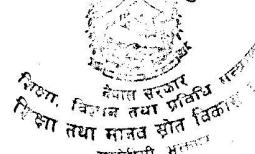 नेपाल सरकार
शिक्षा, विज्ञान तथा प्रविधि
शिक्षा तथा मानव स्रोत विकास